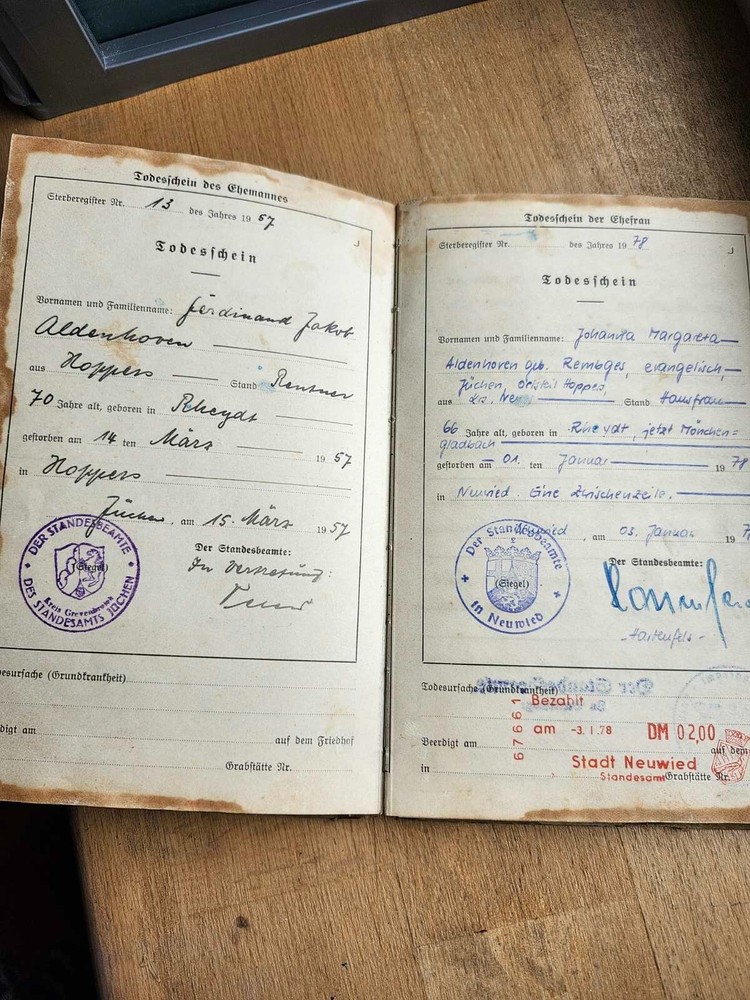 Todesschein des Ehemannes
Sterberegister Nr. 13 des Jahres 1957
Todesschein
Vornamen und Familienname: Ferdinand Jakob
Aldenhoven
aus Hoppers Stand Rentner
70 Jahre alt, geboren in Rheydt
gestorben am 14 ten März 1957
in Hoppers
Jüchen, am 15. März 1957
DER STANDESBEAMTE
DES STANDESAMTS JÜCHEN
Kreis Grevenbroich
(Siegel)
Der Standesbeamte:
In Vertretung:
desursache (Grundkrankheit)
digt am auf dem Friedhof
Grabstätte Nr.
Todesschein der Ehefrau
Sterberegister Nr. des Jahres 1978
Todesschein
Vornamen und Familienname: Johanna Margareta
Aldenhoven geb. Rembges, evangelisch,
Jüchen, Ortsteil Hoppers,
aus Krs. Neuss Stand Hausfrau
66 Jahre alt, geboren in Rheydt, jetzt Mönchen=
gladbach
gestorben am 01. ten Januar 1978
in Neuwied. Eine Zwischenzeile.
Neuwied, am 03. Januar 197
Der Standesbeamte
in Neuwied
(Siegel)
Der Standesbeamte:
-Hartenfels-
Todesursache (Grundkrankheit)
Der Standesbeamte
67661
Bezahlt
am -3.1.78 DM 02,00
Beerdigt am auf dem
Stadt Neuwied
Standesamt
in Grabstätte Nr.